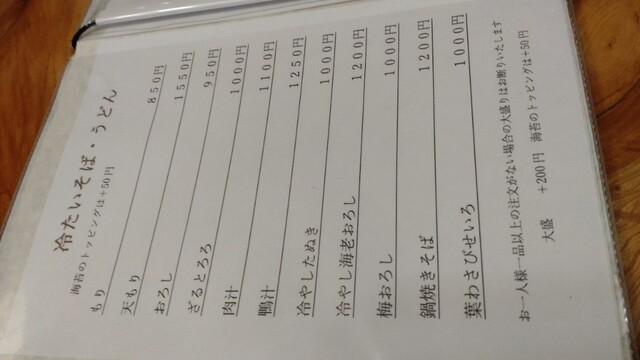 冷たいそば・うどん
海苔のトッピングは+50円
もり 850円
天もり 1550円
おろし 950円
ざるとろろ 1000円
肉汁 1100円
鴨汁 1250円
冷やしたぬき 1000円
冷やし海老おろし 1200円
梅おろし 1000円
鍋焼きそば 1200円
葉わさびせいろ 1000円
お一人様一品以上の注文がない場合の大盛りはお断りいたします
大盛 +200円 海苔のトッピングは+50円